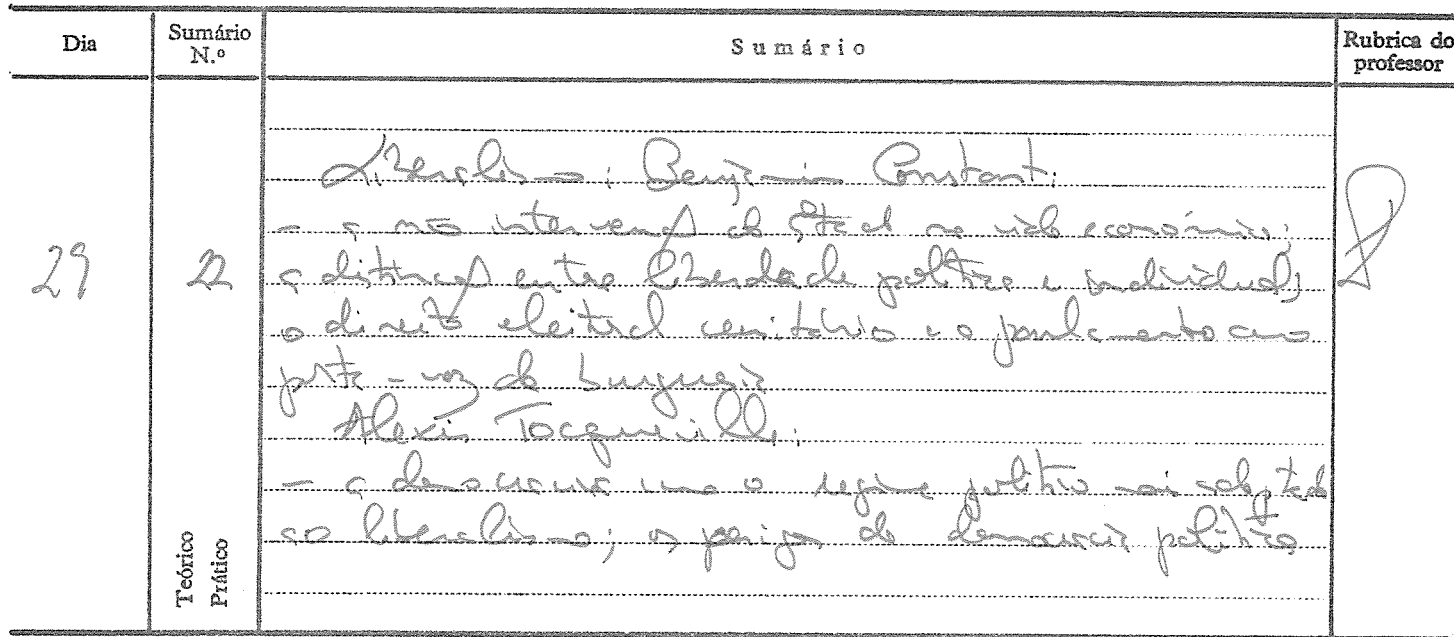 Dia
Sumário N.º
Sumário
Rubrica do professor
29
22
Liberalismo: Benjamin Constant:
- a não intervenção do Estado na vida económica;
a distinção entre liberdade política e individual;
o direito eleitoral censitário e o parlamento como
porta-voz da burguesia
Alexis Tocqueville:
- a democracia como o regime político mais adaptado
ao liberalismo; os perigos da democracia política
Teórico
Prático